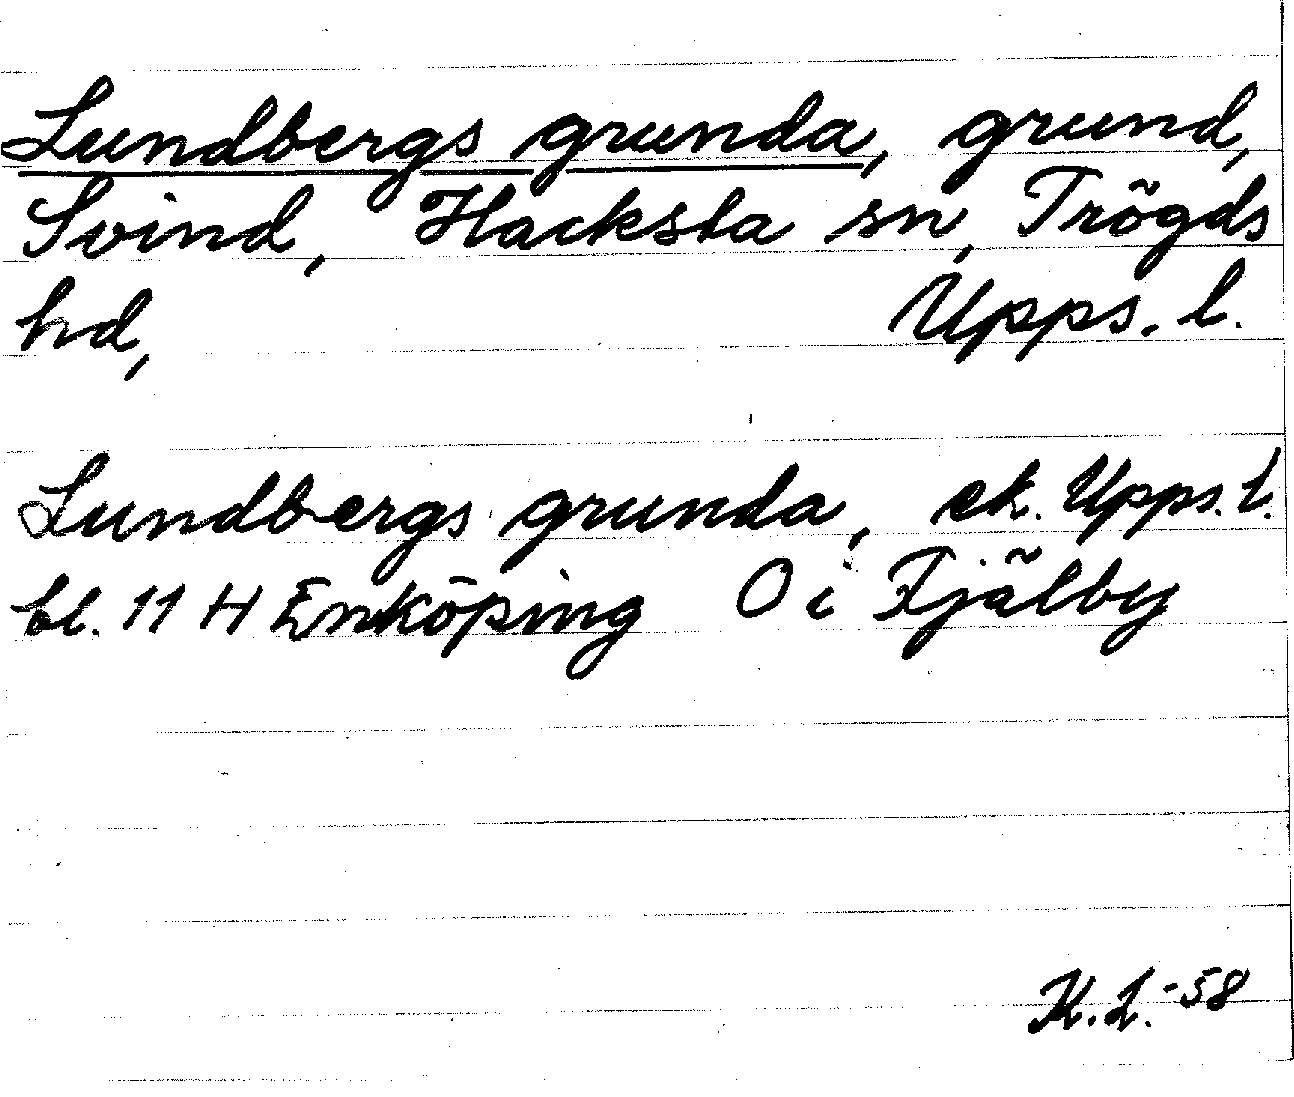 Lundbergs grunda, grund,
Svind, Hacksta sn, Trögds
hd, Upps. l.
Lundbergs grunda, ek. Upps. l.
bl. 11 H Enköping O i Fjälby
K.L.-58